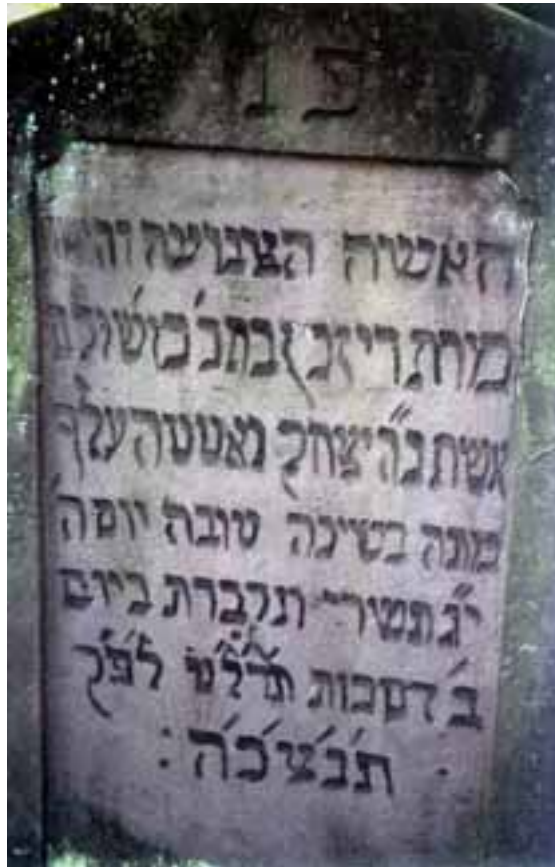 פ נ
האשה הצנועה
מרת רייזכן בת כ' משולם
אשת כ"ה יצחק גאטטהעלף
מתה בשיבה טובה יום ה'
י"ג תשרי ונקברת ביום
ב' דסכות תרל"ט לפ"ק
ת'נ'צ'ב'ה' :